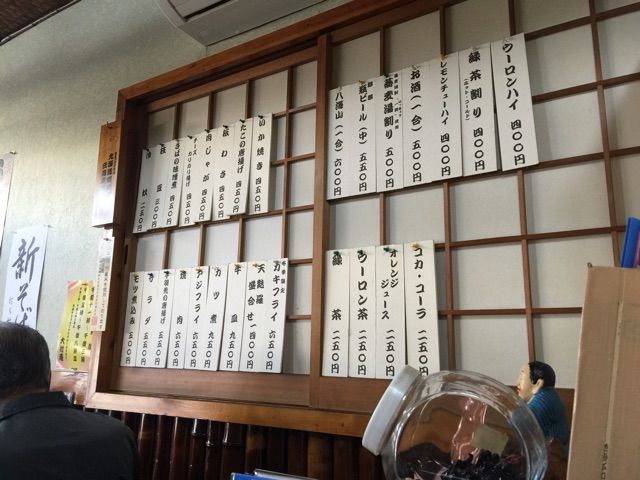 ウーロンハイ 四〇〇円
緑茶割り(ホット・コールド) 四〇〇円
レモンチューハイ 四〇〇円
お酒(一合) 五〇〇円
蕎麦湯割り 五五〇円
瓶ビール(中) 五五〇円
八海山(一合) 六〇〇円
いか焼き 五五〇円
たこの唐揚げ 四五〇円
板わさ 四五〇円
肉じゃが 四五〇円
チーズのり揚げ 四五〇円
さばの味噌煮 四五〇円
枝豆 三〇〇円
冷奴 二五〇円
コカ・コーラ 二五〇円
オレンジジュース 二五〇円
ウーロン茶 二五〇円
緑茶 二五〇円
冬季限定
カキフライ 六五〇円
天麩羅盛合せ 一四〇〇円
牛皿 五五〇円
カツ煮 九五〇円
アジフライ 五五〇円
焼肉 五五〇円
鶏の唐揚げ 五五〇円
サラダ 五五〇円
モツ煮込み 五五〇円
新そば